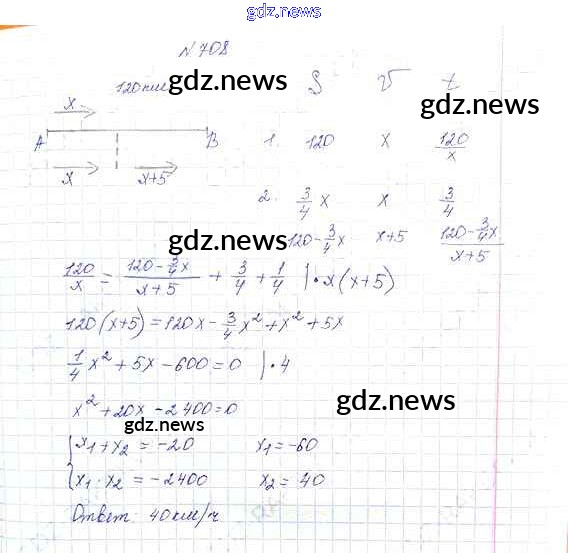 gdz.news
N 708
120 км
gdz.news
gdz.news
S V t
x
A B
x x+5
1. 120 x 120/x
2. 3/4 x x 3/4
gdz.news
120-3/4x x+5 (120-3/4x)/(x+5)
120/x = (120-3/4x)/(x+5) + 3/4 + 1/4 |•x(x+5)
120(x+5)=120x-3/4x²+x²+5x
1/4x²+5x-600=0 |•4
x²+20x-2400=0
gdz.news
gdz.news
{x₁+x₂=-20 x₁=-60
x₁·x₂=-2400 x₂=40
Ответ: 40км/ч